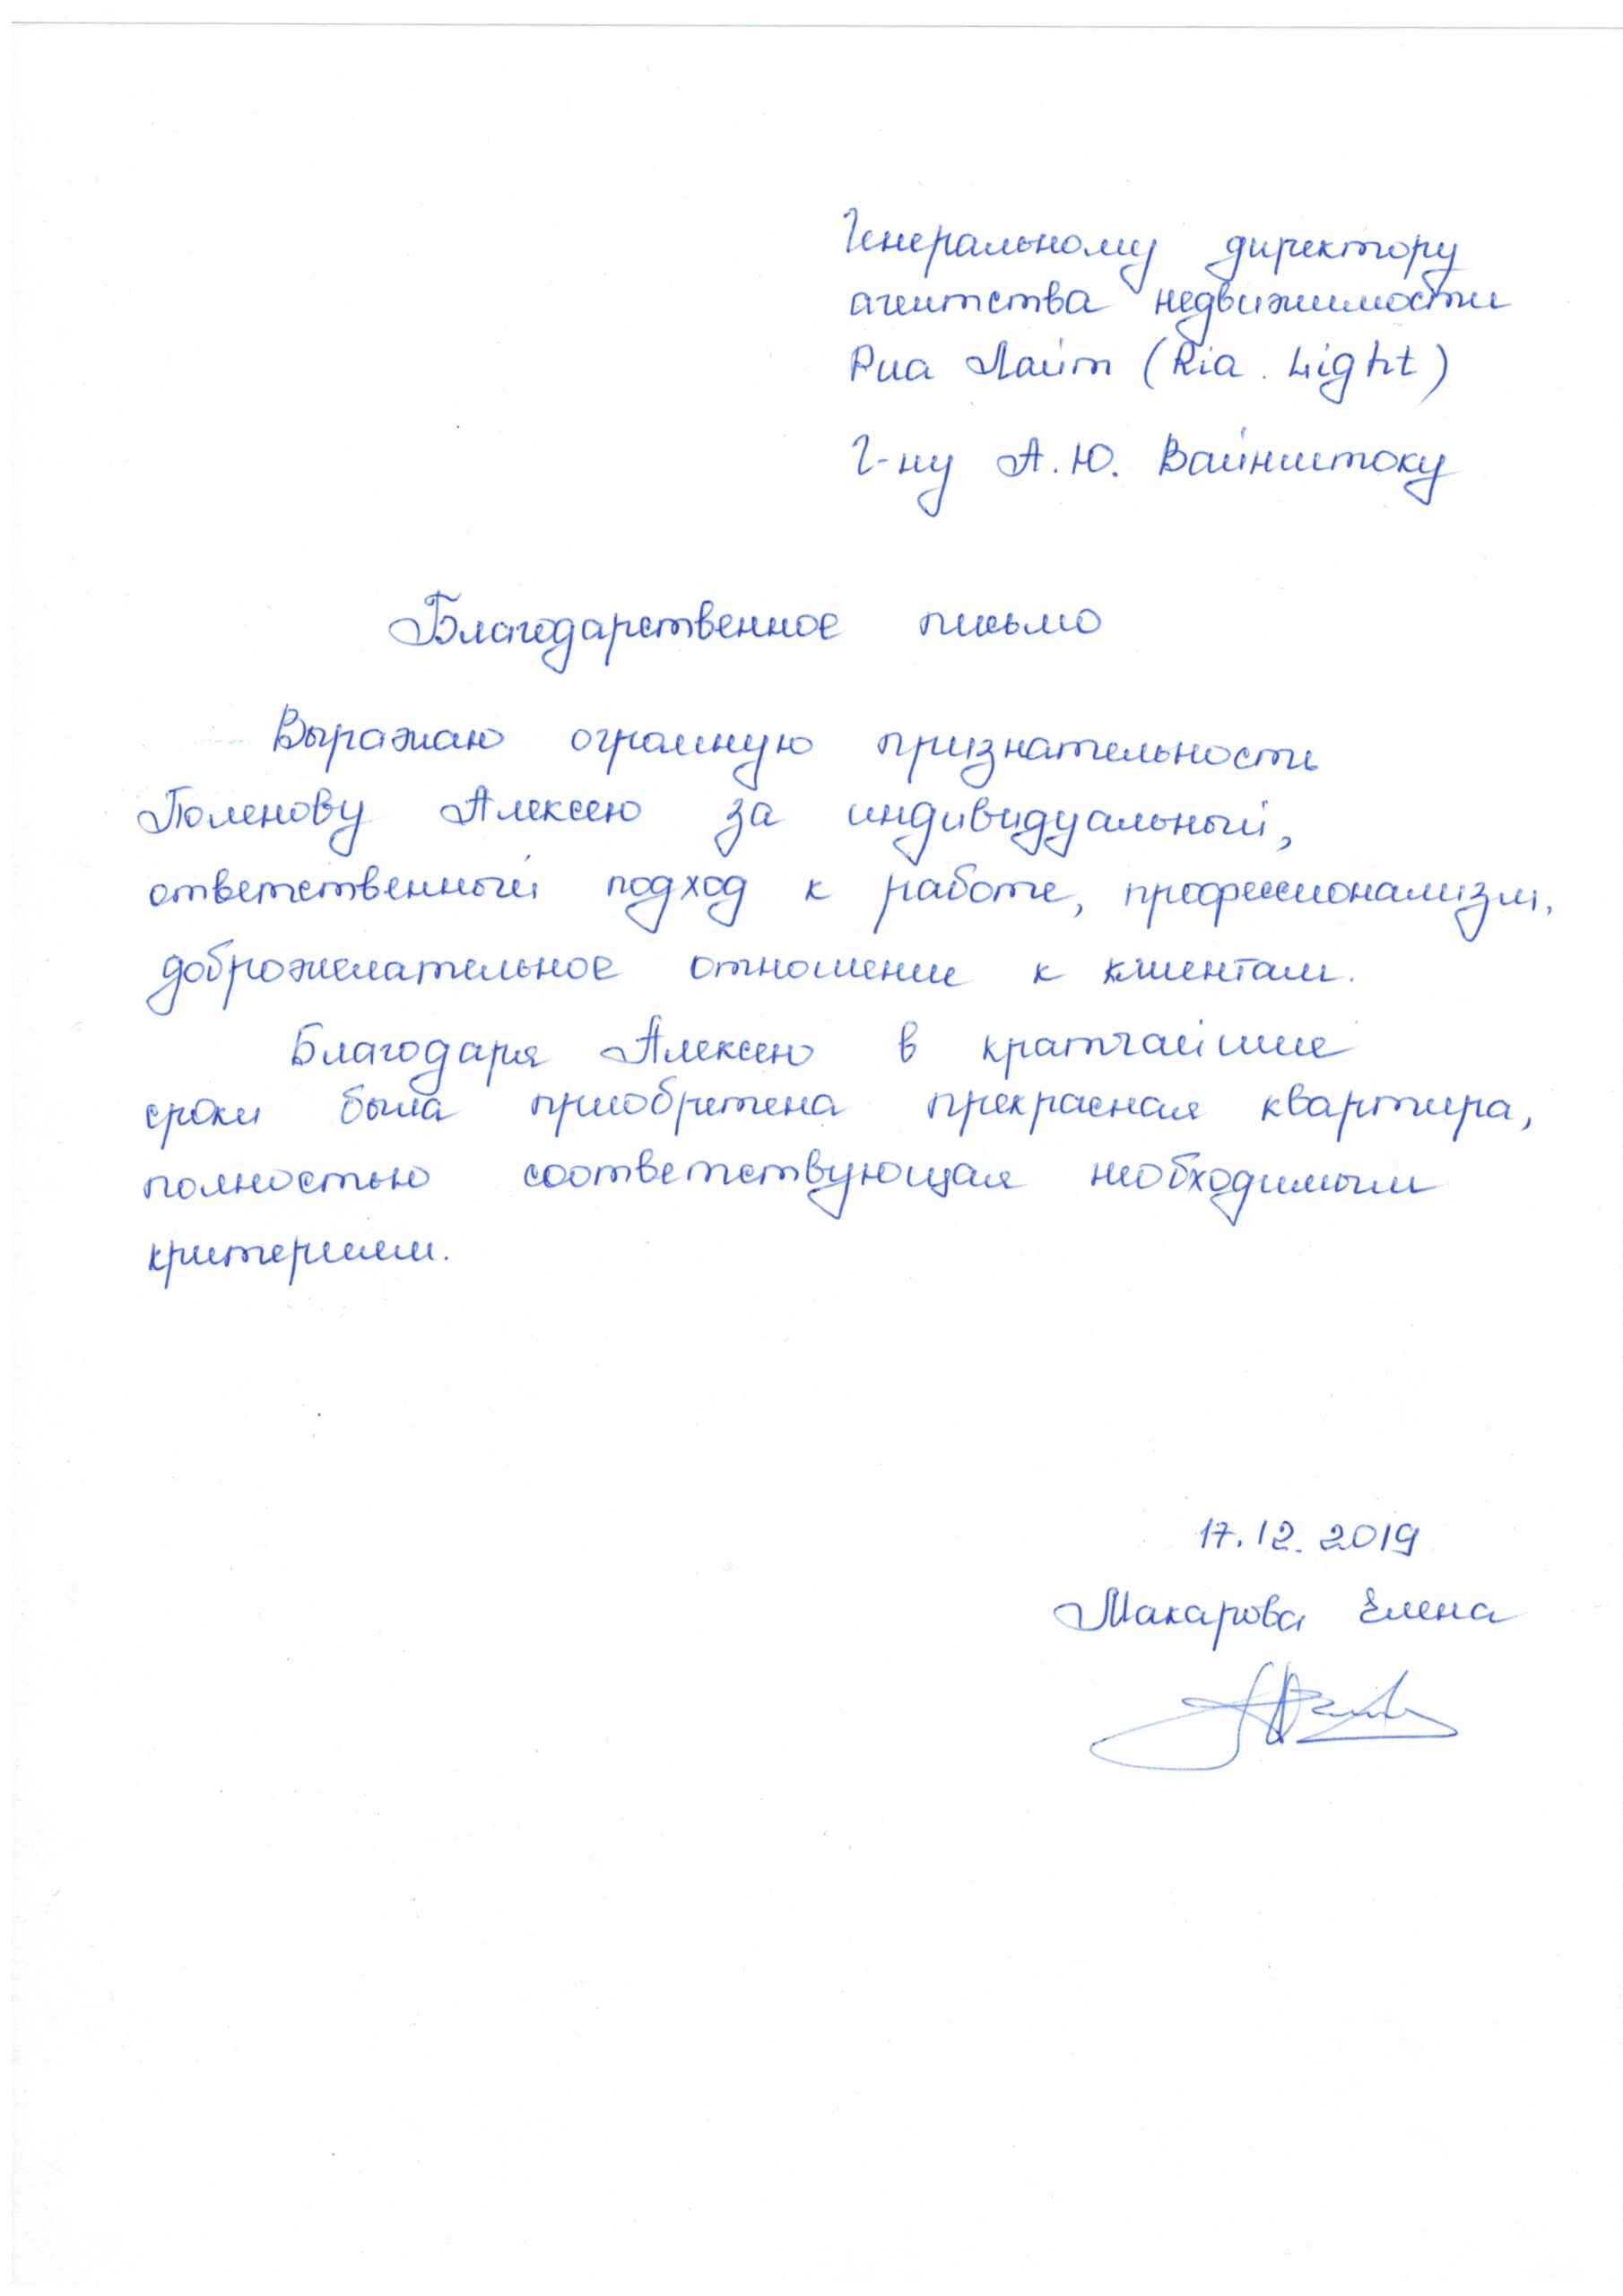 Генеральному директору
агентства недвижимости
Риа Лайт (Ria Light)
г-ну А.Ю. Вайнштоку
Благодарственное письмо
Выражаю огромную признательность
Поленову Алексею за индивидуальный,
ответственный подход к работе, профессионализм,
доброжелательное отношение к клиентам.
Благодаря Алексею в кратчайшие
сроки была приобретена прекрасная квартира,
полностью соответствующая необходимым
критериям.
17.12.2019
Макарова Елена